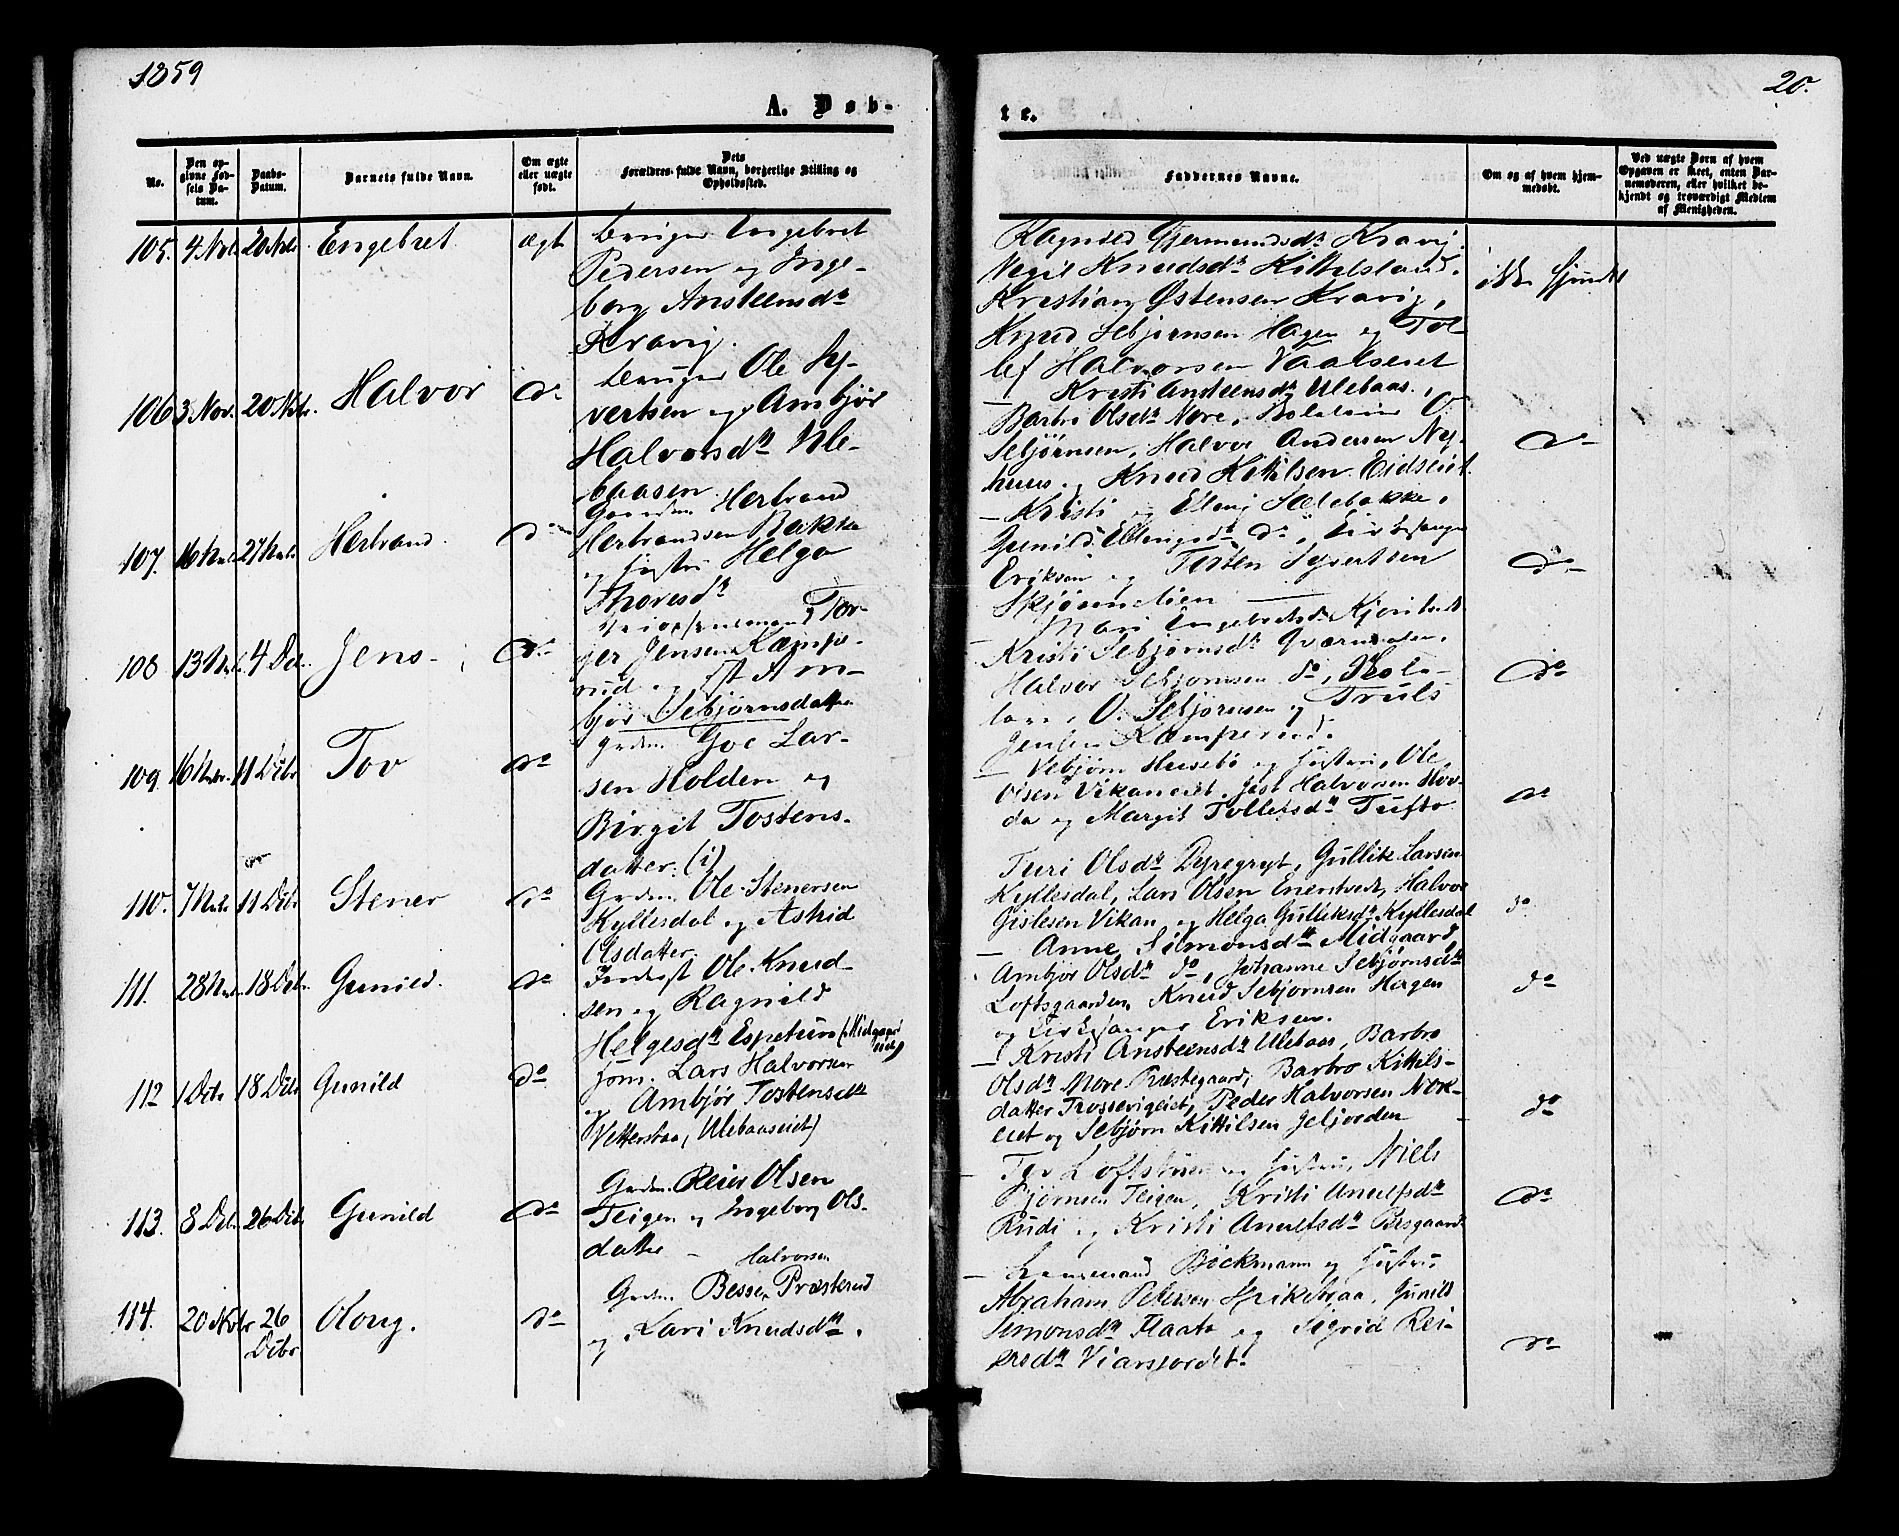 1859
20.
A. Døb-
te.
No.
Den op-
givne Fød-
sels Da-
tum.
Daabs-
Datum.
Barnets fulde Navn.
Om ægte
eller uægte
født.
Dets
Forældres fulde Navn, borgerlige Stilling og
Opholdssted.
Faddernes Navne.
Om og af hvem hjem-
medøbt.
Ved uægte Børn af hvem
Opgaven er skeet, enten Bar-
nemoderen, eller hvilket be-
kjendt og troværdigt Medlem
af Menigheden.
105. 4 Nvbr 20 Nvbr Engebret ægt Bruger Engebret
Pedersen og Inge-
borg Ansteensdr
Kravig.
Ragnild Gjermundsdr Kravig.
Vegil Knudsdr Kittilsland.
Kristian Østensen Kravig,
Knud Sebjørnsen Hagen og Tol-
lef Halvorsen Vaalseiet
ikke hjemdbt
106 3 Nov. 20 Nvbr. Halvor do Bruger Ole Sy-
vertsen og Ambjør
Halvorsdr Ule-
baasen
Kristi Ansteensdr Ulebaas,
Barbro Olsdr Nore, O.
Sebjørnsen, Halvor Andersen Ny-
huus og Knud Kittilsen Eidseiet.
do
107. 16 Nvbr 27 Nvbr. Herbrand. do Gaardm. Herbrand
Herbrandsen Bakke
og Hustru Helga
Thoresdr
Kristi og Elling Sælebakke,
Gunild Ellingsdr do, Kirkesanger
Eriksen og Tosten Syvertsen
Skjønnelien
do
108 13 Nvbr. 4 Dcb. Jens do Tor-
ger Jensen Kæmpe-
rud og Hst Am-
bjør Sebjørnsdatter
Mari Engebretsdr
Kristi Sebjørnsdr
Halvor Sebjørnsen do,
O. Sebjørnsen og Truls
Jensen Kæmperud.
do
109 16 Nvbr. 11 Dcbr Tov do grdm. Goe Lar-
sen Holden og
Birgit Tostens-
datter. (i)
Vebjørn Husebø og Hustru, Ole
Olsen Vikaneiet, Jøst Halvorsen Hov-
da og Margit Tollefsdr Tufto
do
110. 7 Nvbr. 11 Dcbr Stener do Grdm. Ole Stenersen
Kyllesdal og Astrid
Olsdatter
Turi Olsdr Dyregryt, Gullik Larsen
Kyllesdal, Lars Olsen Enerstvedt, Halvor
Gislesen Vikan og Helga Gulliksdr Kyllesdal
do
111. 28 Nvbr. 18 Dcb. Gunild. do Inderst Ole Knud-
sen og Ragnild
Helgesdr Espetun (Midgaard
eiet)
Anne Simonsdr Midgaard
Ambjør Olsdr do, Johanne Sebjørnsdr
Loftsgaarden, Knud Sebjørnsen Hagen
og Kirkesanger Eriksen.
do
112 1 Dcbr 18 Dcbr Gunild do Jom. Lars Halvorsen
og Ambjør Tostensdr
Vetterstaa, Ulebaaseiet)
Kristi Ansteensdr Ulebaas, Barbro
Olsdr Nore Præstegaard, Barbro Kittils-
datter Trossevigeiet, Peder Halvorsen Nor-
eiet og Sebjørn Kittilsen Jeljorden
do
113. 8 Dcb. 26 Dcb. Gunild do Grdm. Reier Olsen
Teigen og Ingeborg Ols-
datter
Tov Loftstuen og Hustru, Niels
Bjørnsen Teigen, Kristi Anulfsdr
Rudi og Kristi Anulfsdr Bergaard
do
114. 20 Nvbr 26
Dcbr Aong. do Grdm. Besse Halvorsen Præsterud
og Lari Knudsdr.
Lensmand Bøckmann og Hustru
Abraham Petersen Spikebraa, Gunild
Simonsdr Flaata og Sigrid Rei-
ersdr Viarsjordet.
do